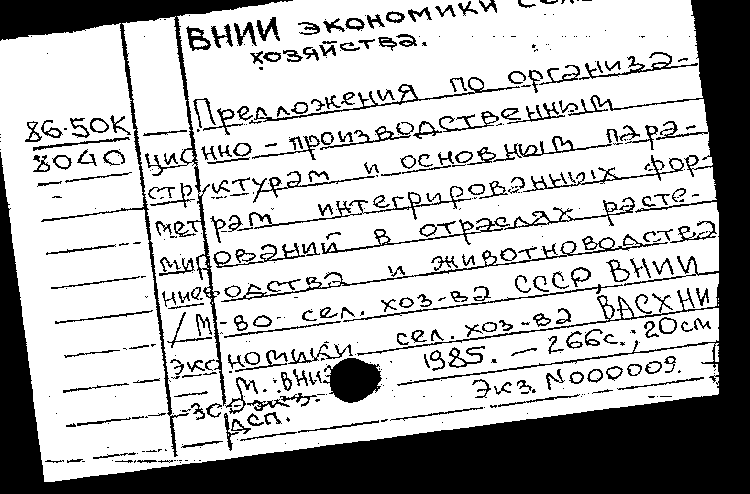 ВНИИ экономики
хозяйства.
86-50К
8040
Предложения по организа-
ционно-производственным
структурам и основным пара-
метрам интегрированных фор-
мирований в отраслях расте-
ниеводства и животноводства
/ М-во сел. хоз-ва СССР, ВНИИ
экономики сел. хоз-ва ВАСХНИ
М.: 1985. - 266с.; 20см
экз. Экз. N000009.
ДСП.